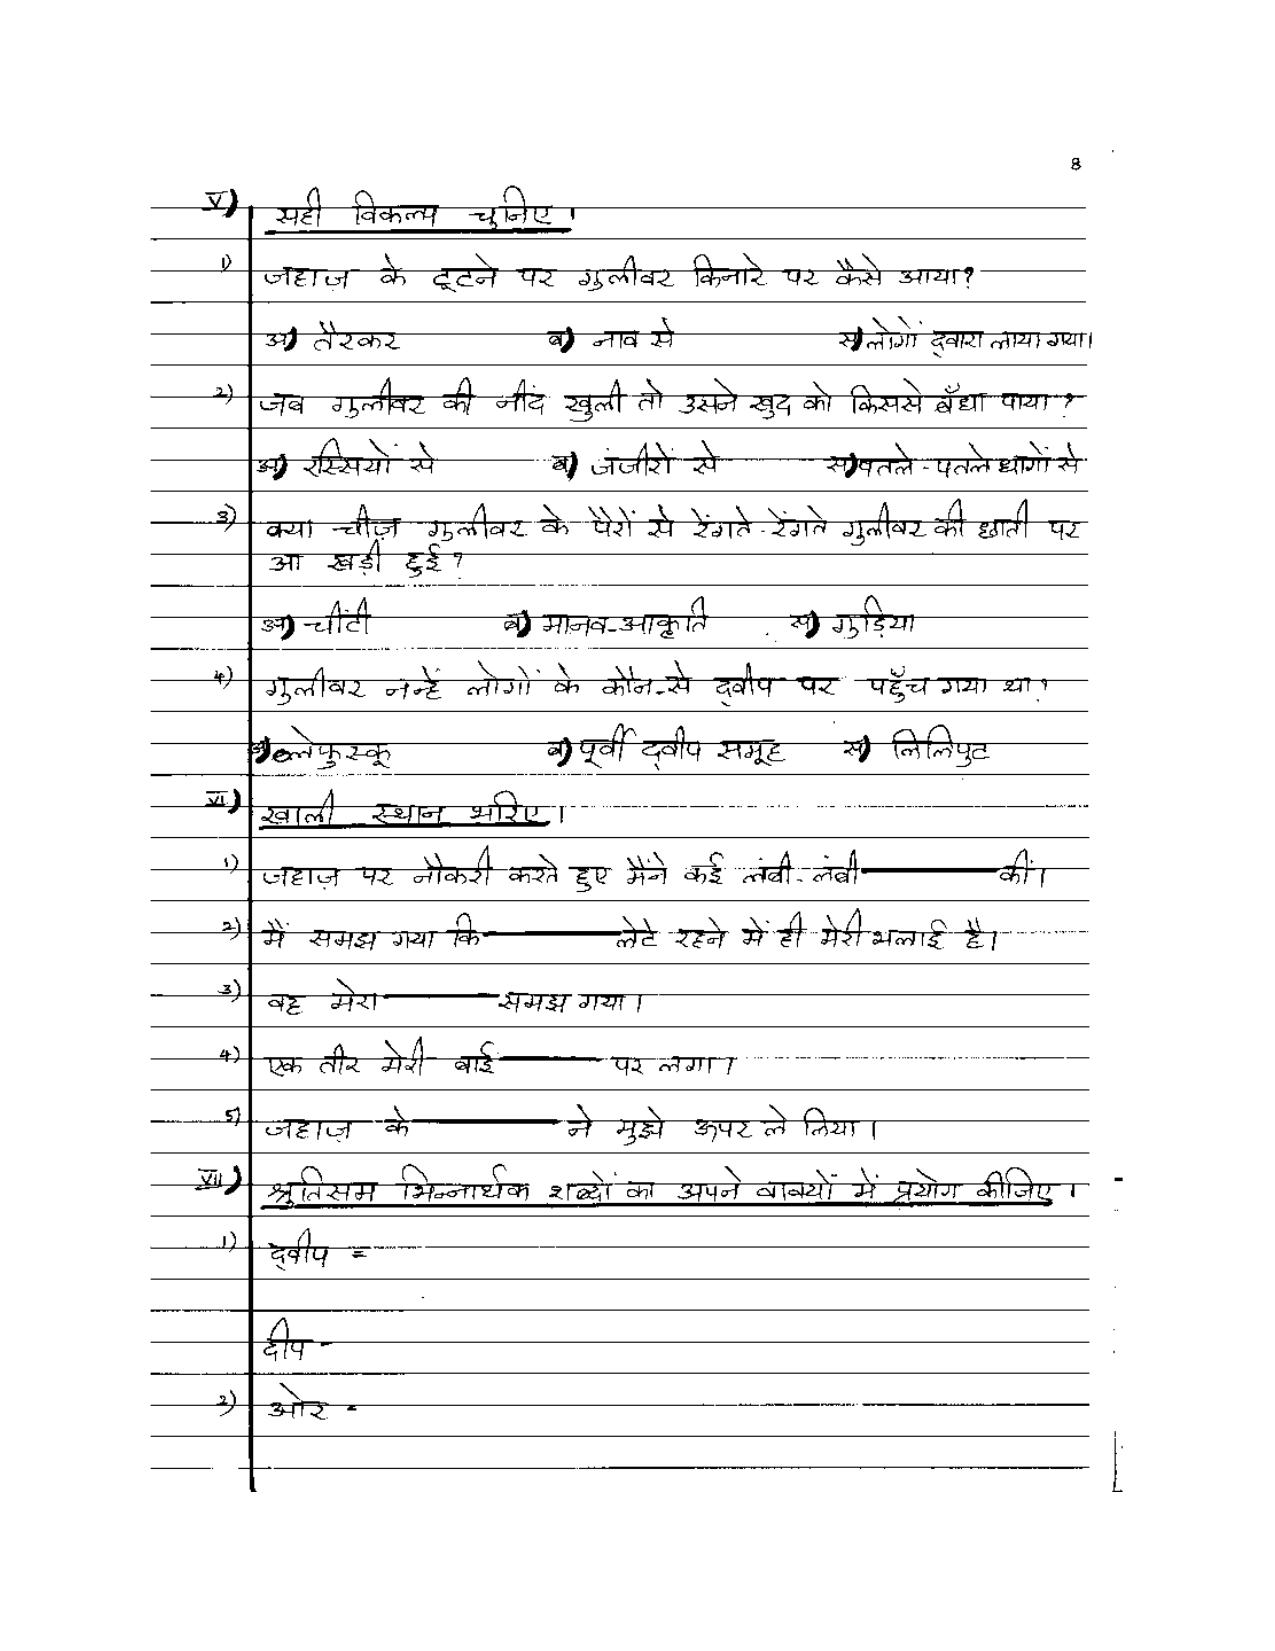 8
V) सही विकल्प चुनिए।
1) जहाज़ के टूटने पर गुलीवर किनारे पर कैसे आया?
अ) तैरकर ब) नाव से स) लोगों द्वारा लाया गया।
2) जब गुलीवर की नींद खुली तो उसने खुद को किससे बँधा पाया?
अ) रस्सियों से ब) जंजीरों से स) पतले-पतले धागों से
3) क्या चीज़ गुलीवर के पैरों से रेंगते-रेंगते गुलीवर की छाती पर
आ खड़ी हुई?
अ) चींटी ब) मानव-आकृति स) गुड़िया
4) गुलीवर नन्हें लोगों के कौन-से द्वीप पर पहुँच गया था?
अ) ब्लेफुस्कू ब) पूर्वी द्वीप समूह स) लिलिपुट
VI) खाली स्थान भरिए।
1) जहाज़ पर नौकरी करते हुए मैंने कई लंबी-लंबी ______ कीं।
2) मैं समझ गया कि ______ लेटे रहने में ही मेरी भलाई है।
3) वह मेरा ______ समझ गया।
4) एक तीर मेरी बाईं ______ पर लगा।
5) जहाज़ के ______ ने मुझे ऊपर ले लिया।
VII) श्रुतिसम भिन्नार्थक शब्दों का अपने वाक्यों में प्रयोग कीजिए।
1) द्वीप =
दीप -
2) ओर -